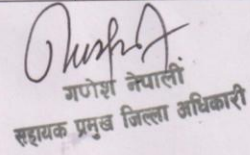 गणेश नेपाली
सहायक प्रमुख जिल्ला अधिकारी